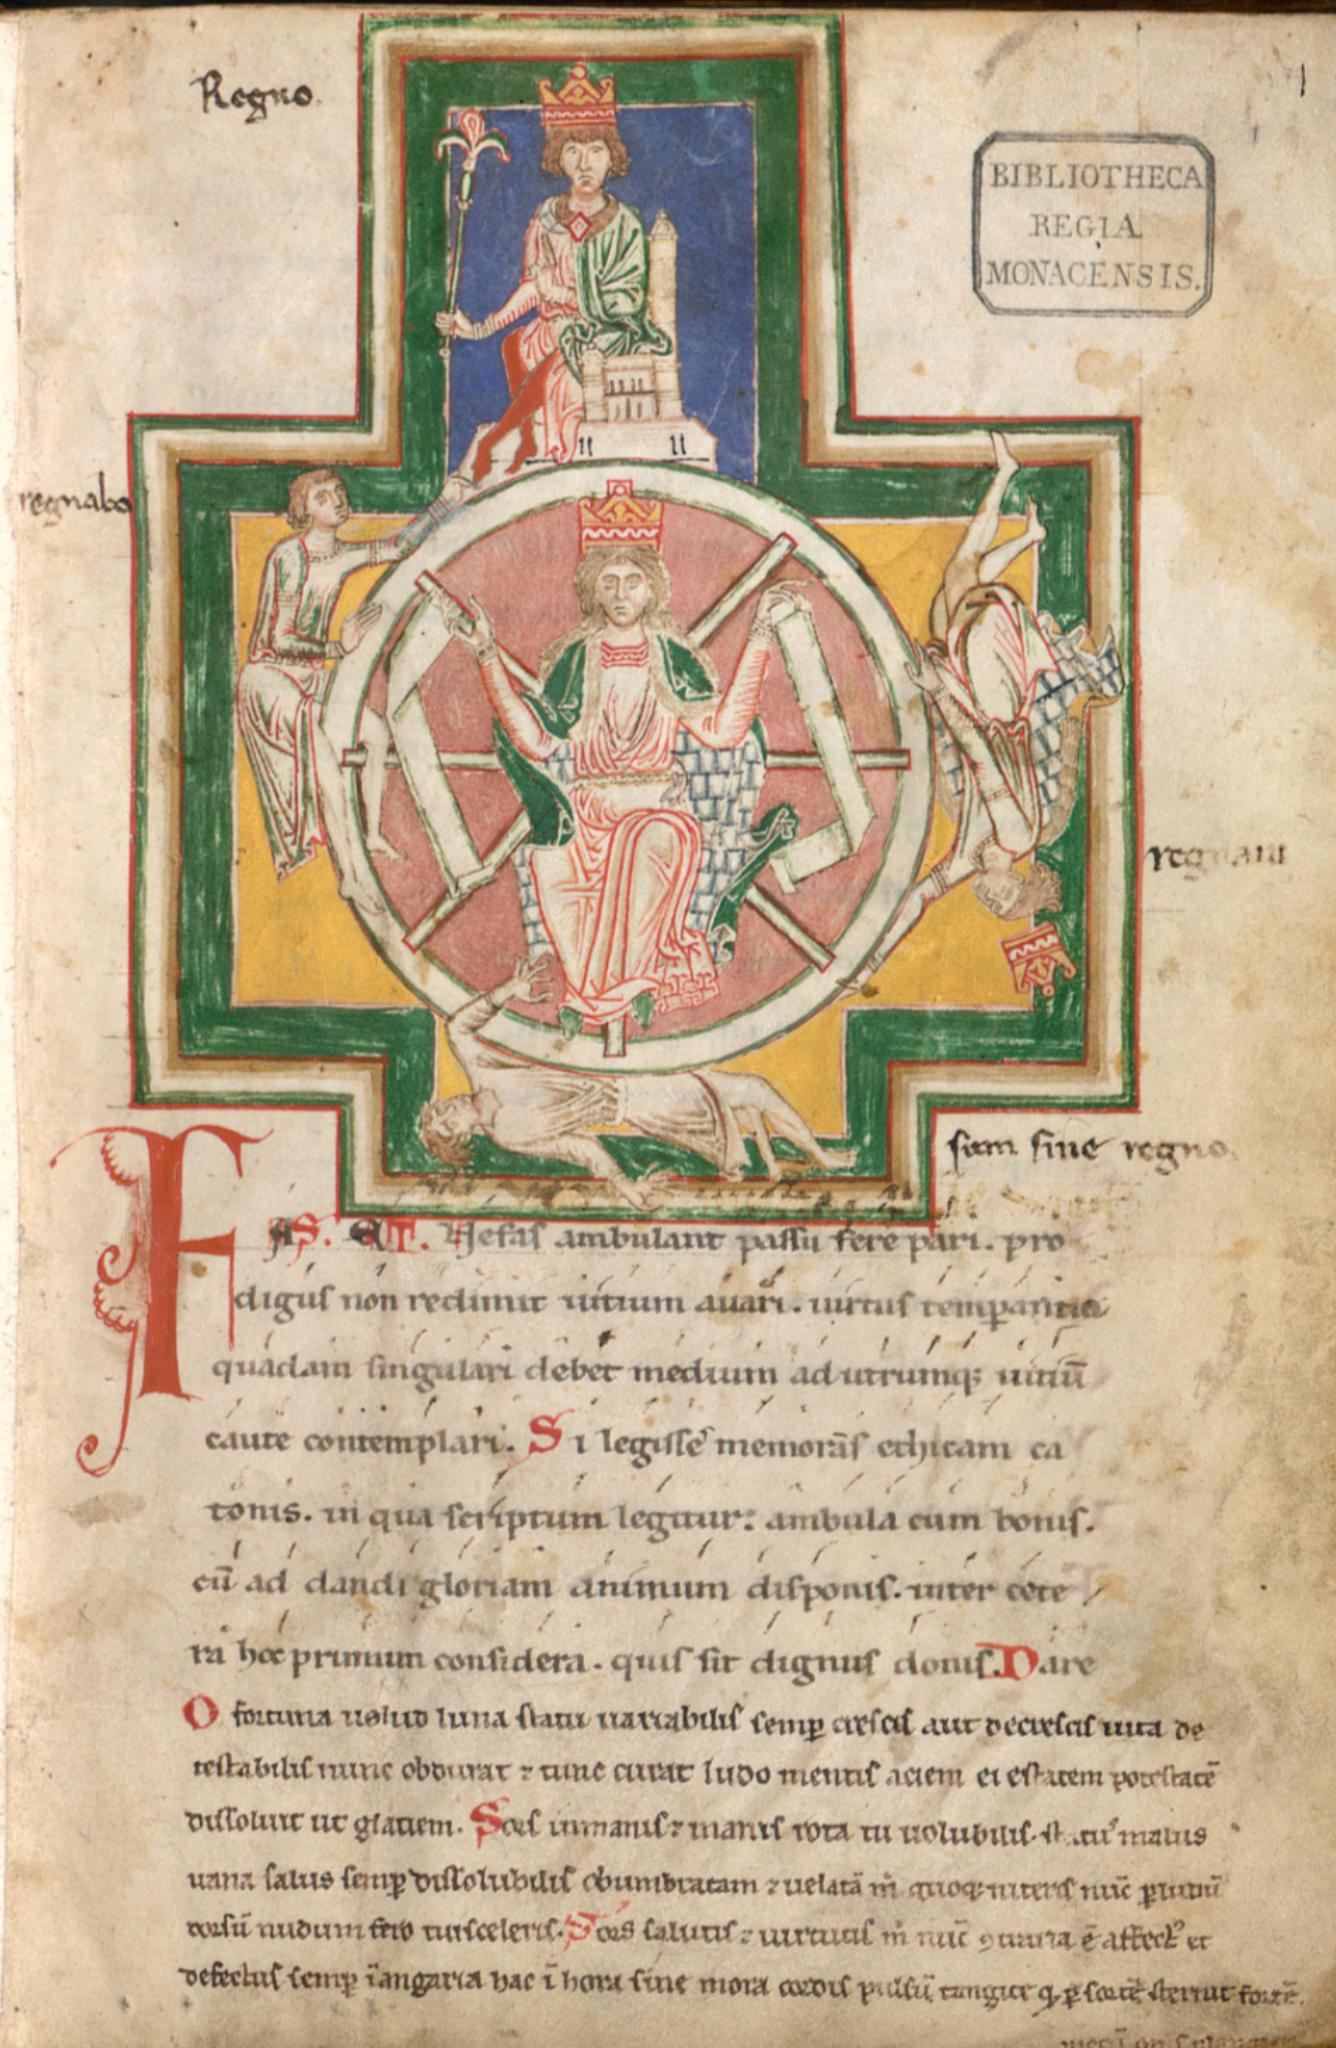 Regno.
1
BIBLIOTHECA
REGIA
MONACENSIS.
regnabo
regnaui
sum sine regno.
FAS. ET. Nefas ambulant passu fere pari. pro
digus non redimit uitium auari. uirtus temperantia
quadam singulari debet medium ad utrumq; uitiū
caute contemplari. Si legisse memorās ethicam ca
tonis. in qua scriptum legitur: ambula cum bonis.
cū ad dandi gloriam animum disponis. inter cete
ra hoc primum considera. quis sit dignus donis. Dare
O fortuna uelud luna statu uariabilis semp crescis aut decrescis uita de
testabilis nunc obdurat ⁊ tunc curat ludo mentis aciem egestatem potestatē
dissoluit ut glaciem. Sors inmanis ⁊ inanis rota tu uolubilis status malus
uana salus semp dissolubilis obumbratam ⁊ uelatā m̄ quoq; niteris nūc p ludū
dorsū nudum fero tui sceleris. Sors salutis ⁊ uirtutis m̄ nūc ꝯtraria ē affect⁹ et
defectus semp ī angaria hac ī hora sine mora cordis pulsū tangite q̄ p sortē sternit fortē